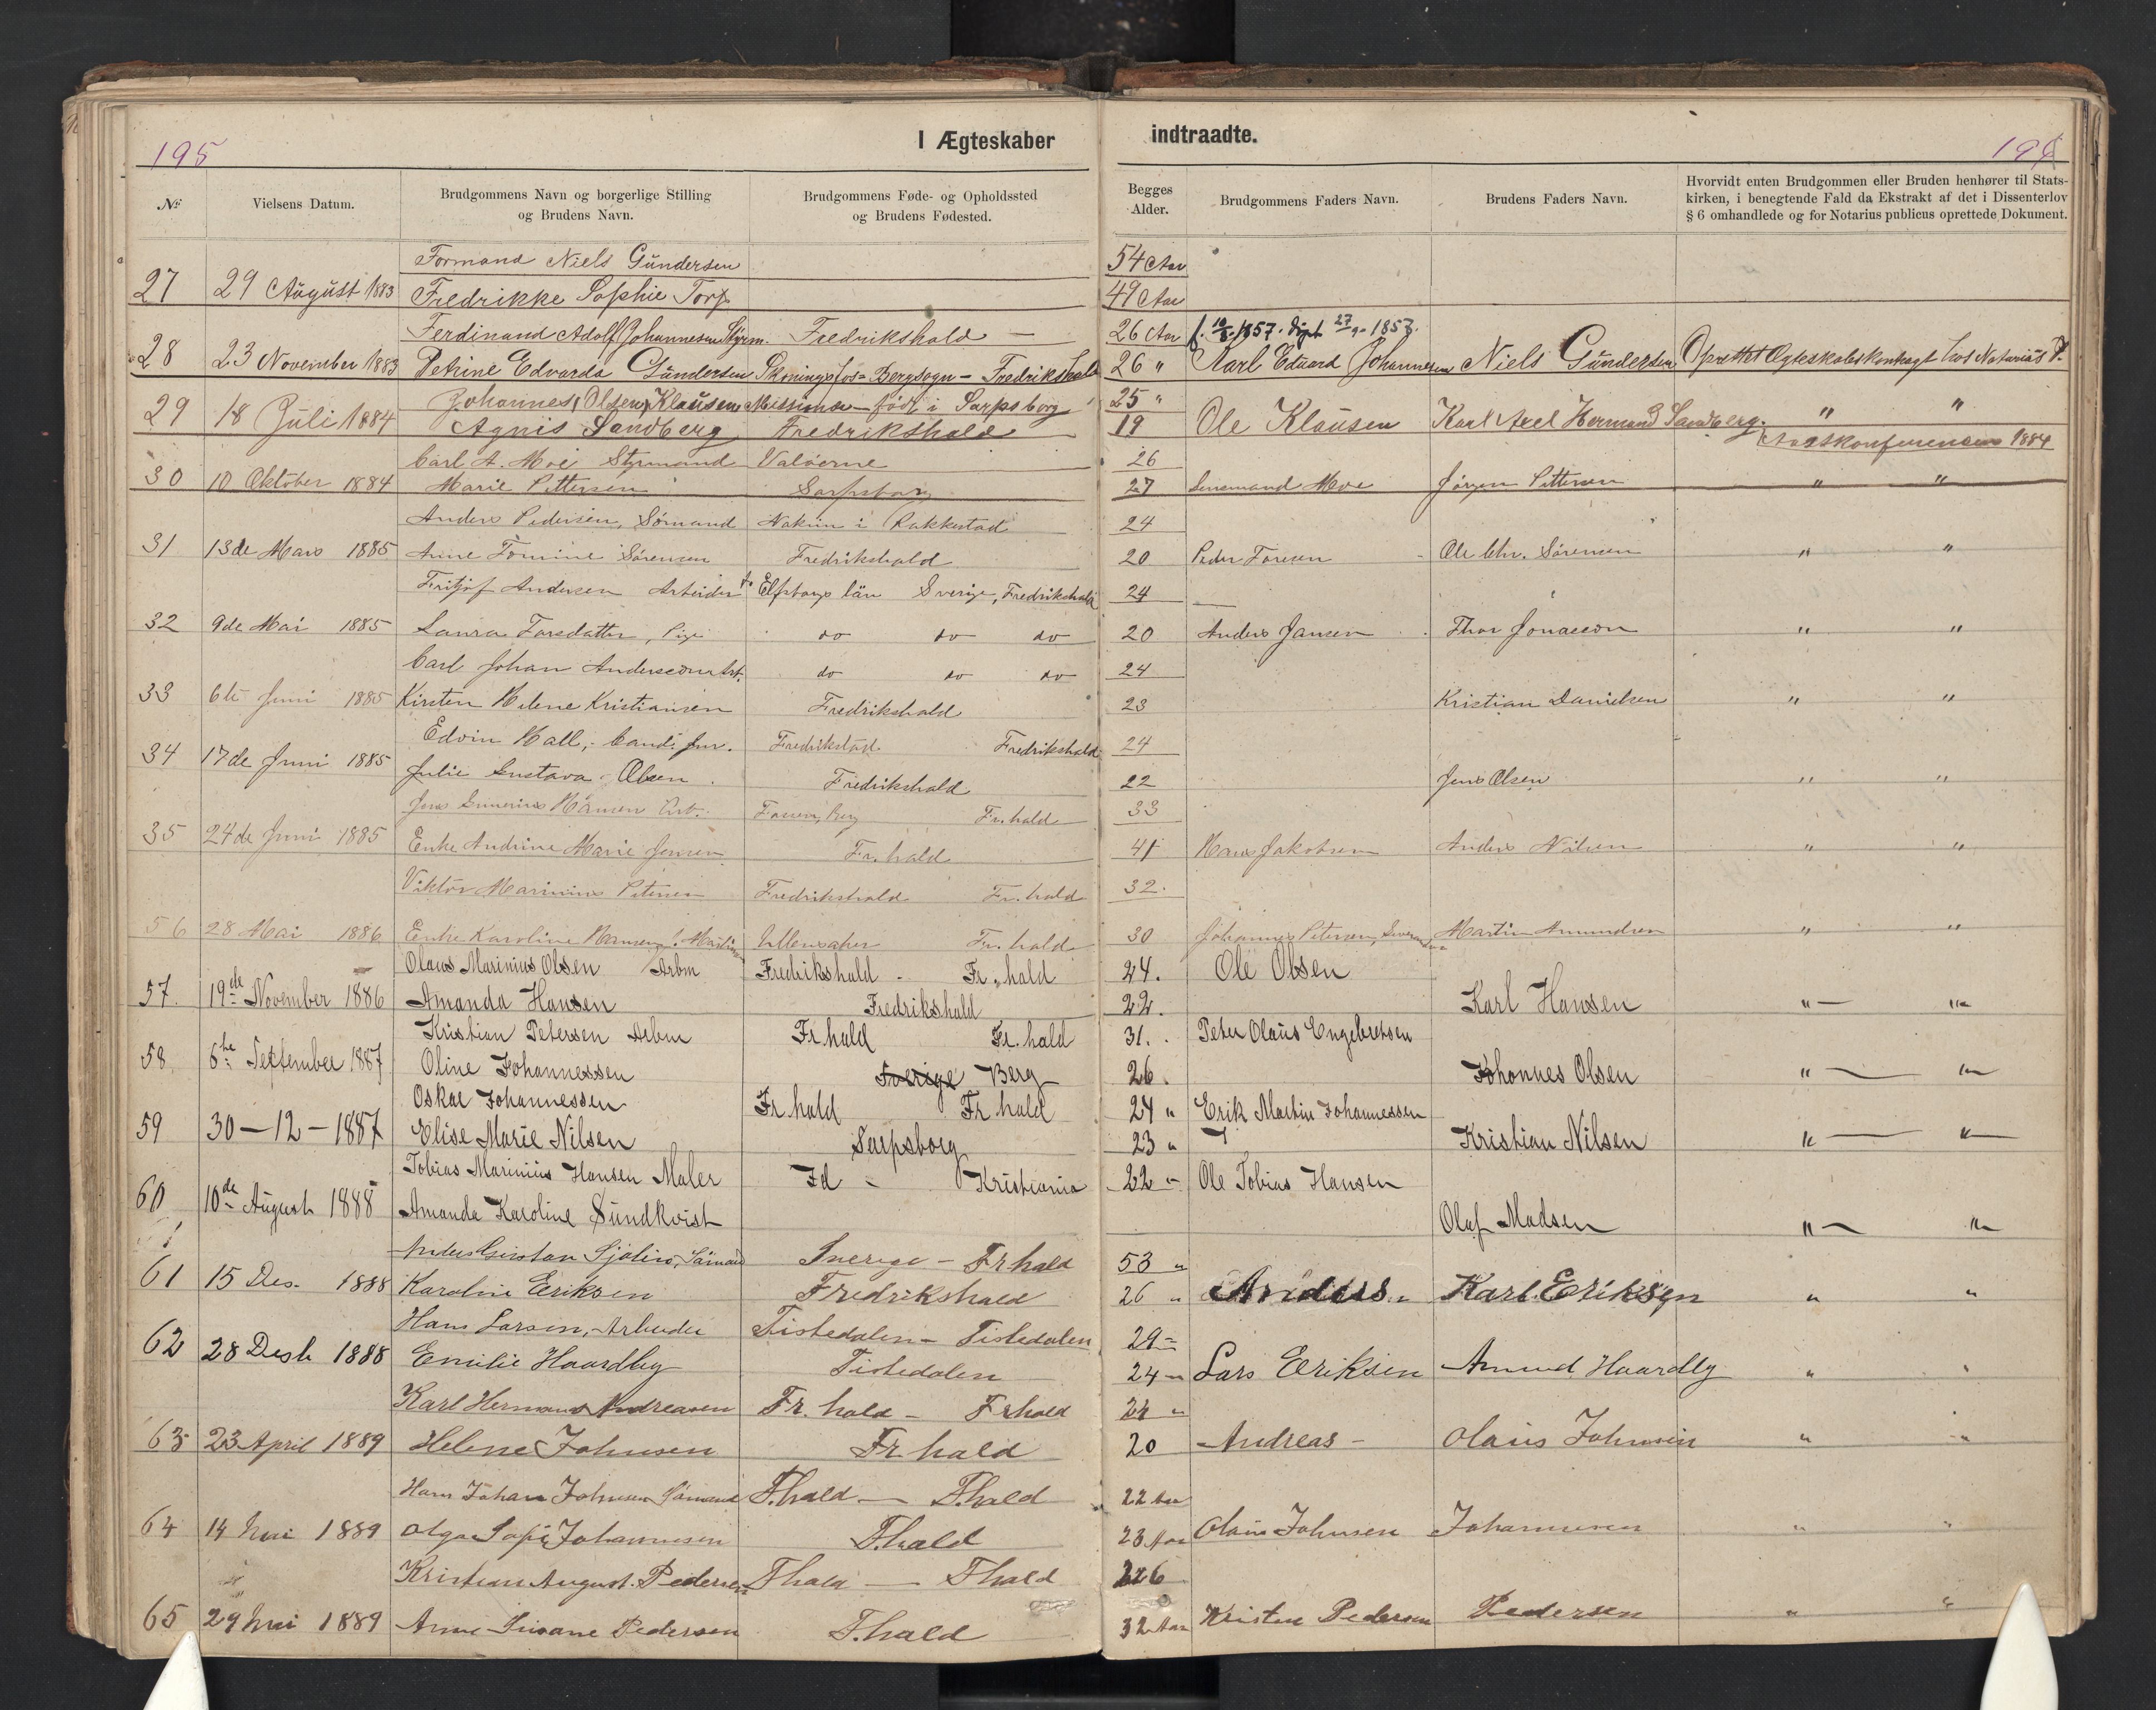 195
I Ægteskaber
indtraadte.
№
Vielsens Datum.
Brudgommens Navn og borgerlige Stilling
og Brudens Navn.
Brudgommens Føde- og Opholdssted
og Brudens Fødested.
Begges
Alder.
Brudgommens Faders Navn.
Brudens Faders Navn.
Hvorvidt enten Brudgommen eller Bruden henhører til Stats-
kirken, i benegtende Fald da Ekstrakt af det i Dissenterlov
§ 6 omhandlede og for Notarius publicus oprettede Dokument.
Formand Niels Gundersen 54 Aar
27 29 August 1883 Fredrikke Sophie Torp 49 Aar
Ferdinand Adolf Johannesen Styrm. Fredrikshald — 26 Aar f. 10/8 1857. døpt 27/9 1857.
28 23 November 1883 Petrine Edvarda Gundersen Skoningsfos - Bergsogn - Fredrikshald 26 " Karl Eduard Johannesen Niels Gundersen Oprettet Ægteskabskontragt hos Notarius P.
Johannes Olsen Klausen Missionær - født i Sarpsborg 25 "
29 18 Juli 1884 Agnis Sandberg Fredrikshald 19 Ole Klausen Karl Axel Hermand Sandberg. " "
Aarskonferensen 1884
Carl A. Moe Styrmand Valøerne 26
30 10 Oktober 1884 Marie Pettersen Sarpsborg 27 Moe Jørgen Pettersen " "
Anders Pedersen, Sømand i Rakkestad 24
31 13de Mars 1885 Anne Tomine Sørensen Fredrikshald 20 Peder Ole Chr. Sørensen " "
Fritjof Andersen Arbeider Elfsborgs län Sverige, Fredrikshald 24
32 9de Mai 1885 Laura Torsdatter, Pige do do do 20 Anders Jansen Thor Jonasson " "
Carl Johan Andersson Arb. do do do 24
33 6te Juni 1885 Kirsten Helene Kristiansen Fredrikshald 23 Kristian Danielsen " "
Edvin Hall, Cand. jur. Fredrikstad Fredrikshald 24
34 17de Juni 1885 Julie Gustava Olsen Fredrikshald 22 Jens Olsen " "
Jens Hansen Arb. Berg Fr. hald 33
35 24de Juni 1885 Enke Andrine Marie Jensen Fr. hald 41 Hans Jakobsen Anders Nilsen " "
Viktor Marinius Petersen Fredrikshald Fr. hald 32.
56 28 Mai 1886 Enke Karoline Hansen Ullensaker Fr. hald 30 Johannes Petersen, Martin Amundsen " "
Olaus Marinius Olsen Arbm Fredrikshald - Fr. hald 24. Ole Olsen
57. 19de November 1886 Amanda Hansen Fredrikshald 22. Karl Hansen " "
Kristian Petersen Arbm Fr. hald Fr. hald 31. Peter Olaus Engebretsen
58. 6te September 1887 Oline Johannessen Sverige Berg 26. Johannes Olsen " "
Oskar Johannessen Fr. hald Fr. hald 24 " Erik Martin Johannessen
59 30-12-1887 Elise Marie Nilsen Sarpsborg 23 " Kristian Nilsen " "
Tobias Marinius Hansen Maler Fd - Kristiania 22 " Ole Tobias Hansen
60 10de August 1888 Amanda Karoline Sundkvist Olaf Madsen " "
Anders Gustav Sjølin, Sømand Sverige - Frhald 53 "
61 15 Des. 1888 Karoline Eriksen Fredrikshald 26 " Anders " Karl Eriksen " "
Hans Larsen, Arbeider Tistedalen - Tistedalen 29 "
62 28 Desb 1888 Emilie Haardby Tistedalen 24 " Lars Eriksen Amund Haardby " "
Karl Herman Andreasen Fr. hald - Frhald 24 "
63 23 April 1889 Helene Johnsen Fr. hald 20 Andreas - Olaus Johnsen " "
Hans Johan Johnsen Sømand F.hald - F.hald 22 Aar
64 14 Mai 1889 Olga Sofie Johannesen F.hald 23 Aar Olaus Johnsen Johannesen " "
Kristian August Pedersen Fhald - Fhald 26
65 29 Mai 1889 Anne Susane Pedersen F.hald 32 Aar Kristen Pedersen Pedersen " "